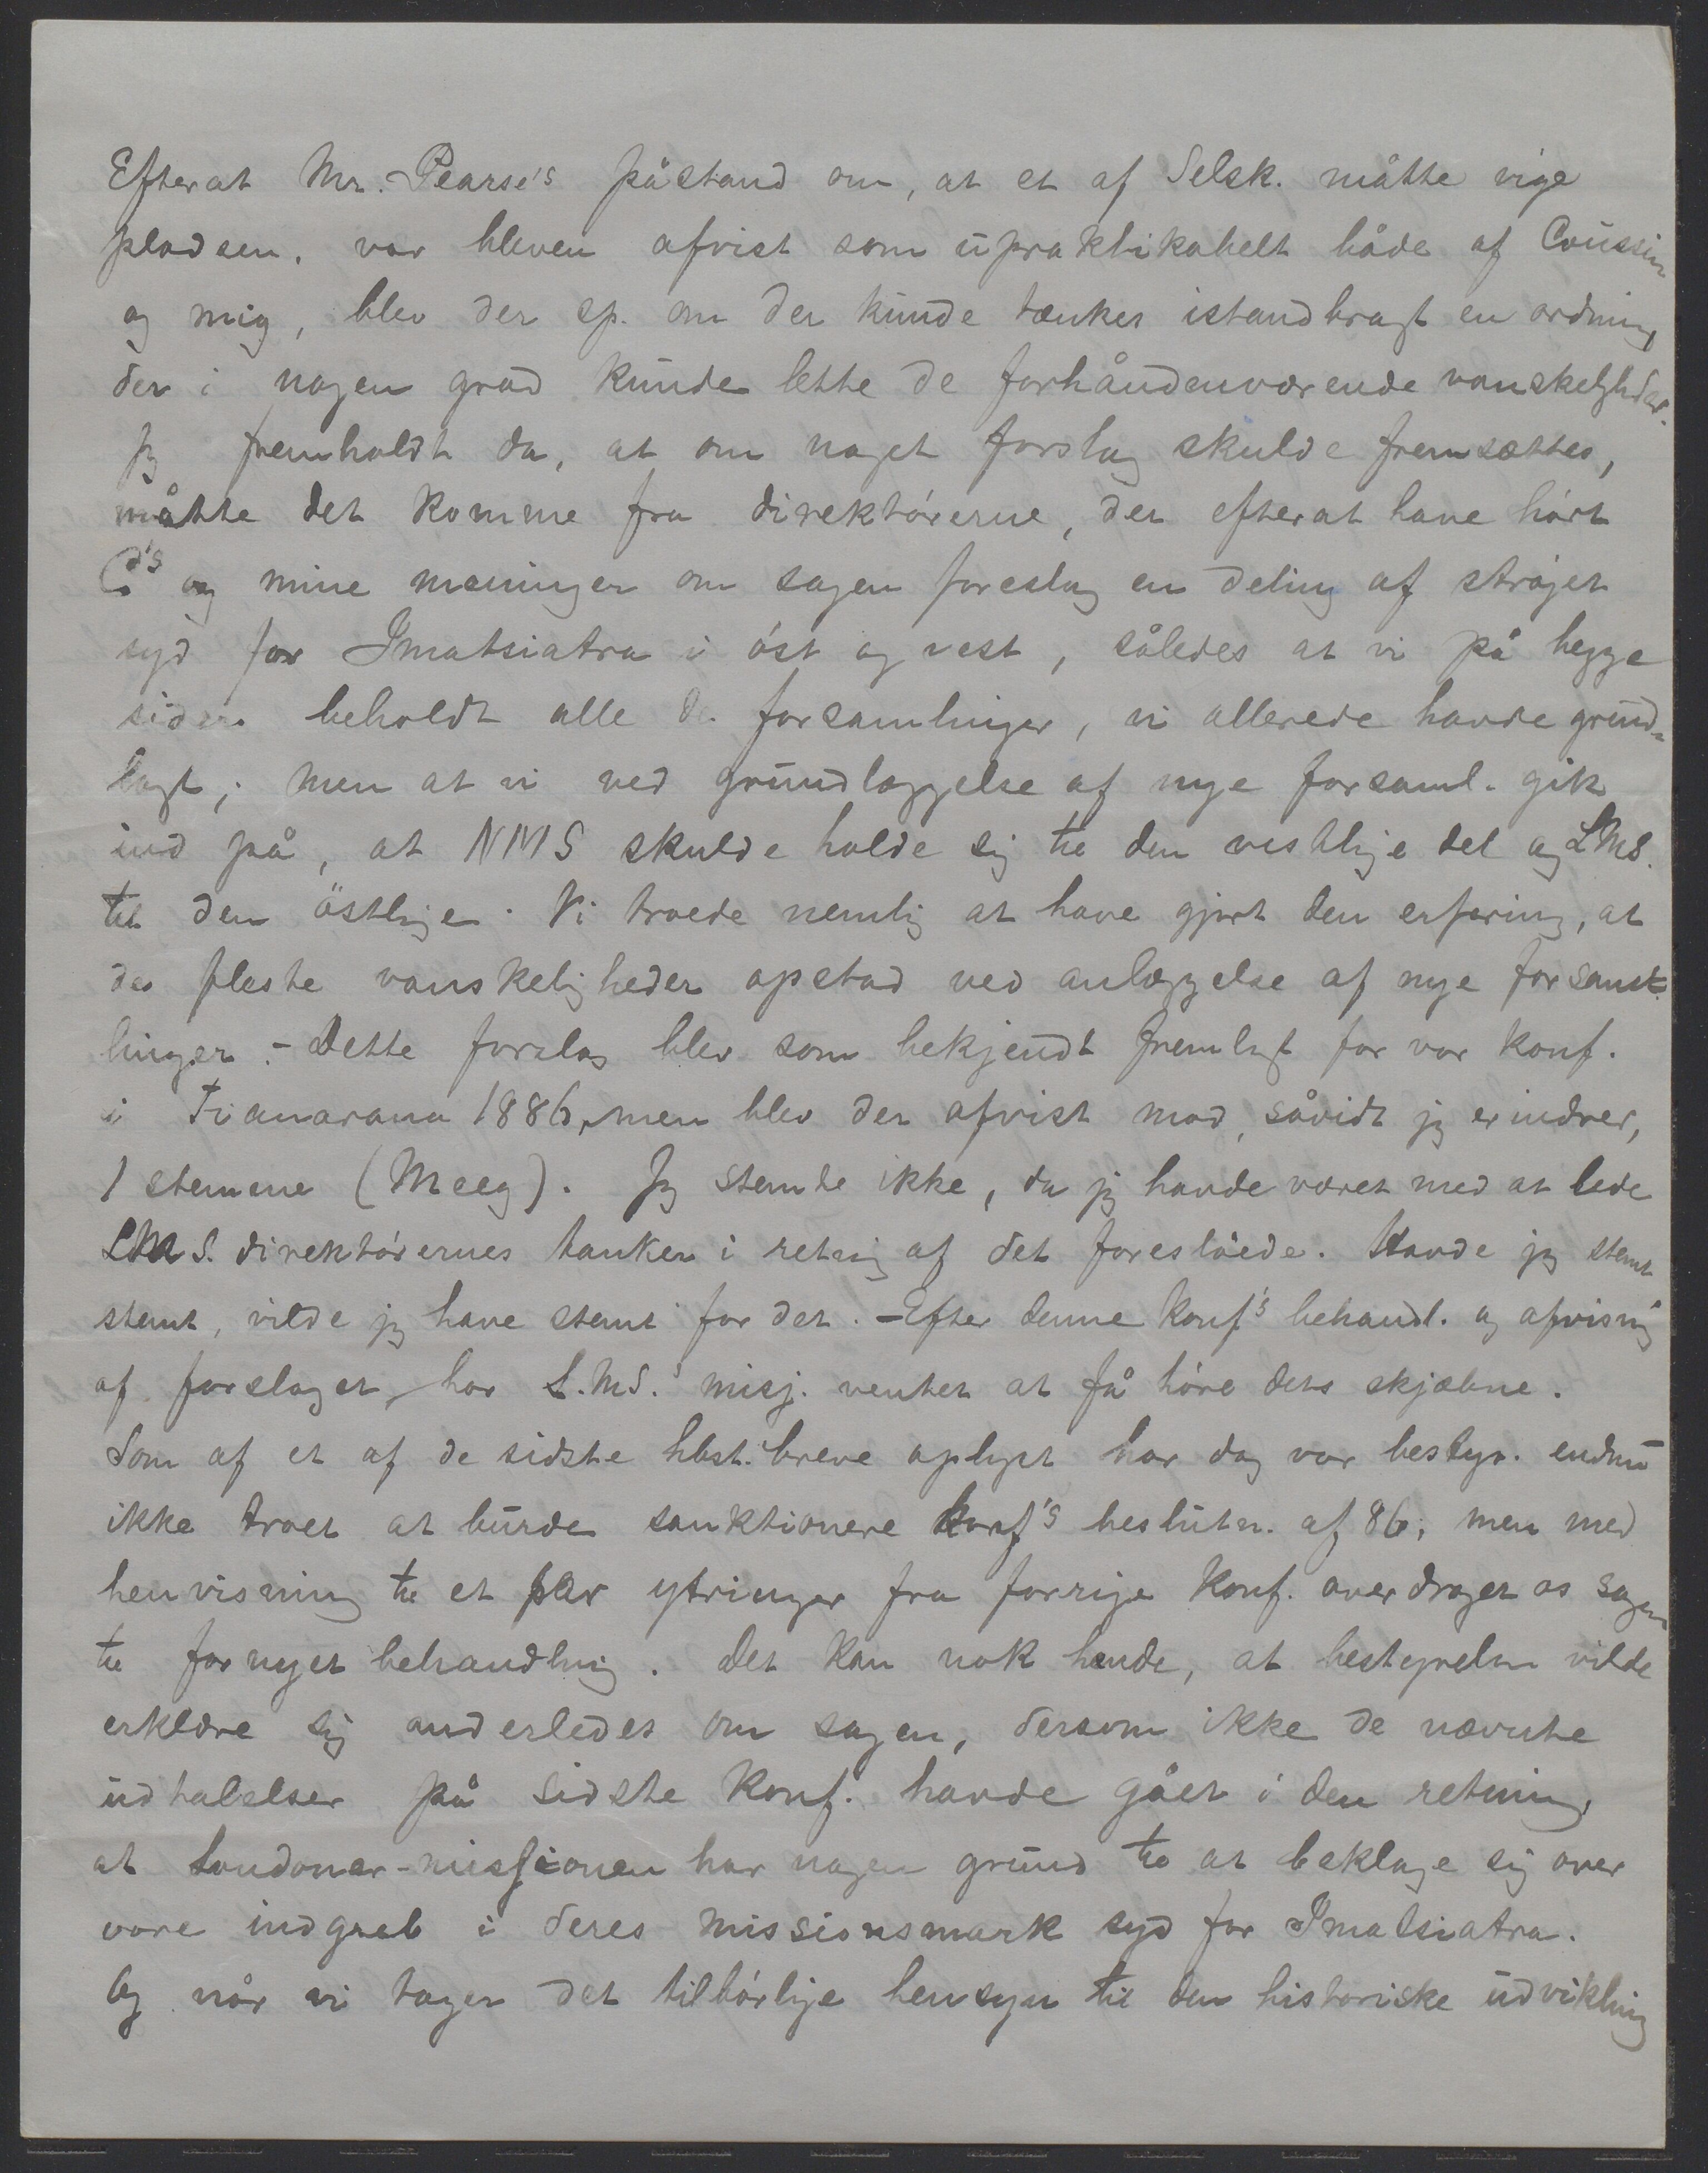 Efterat Mr. Pearse's påstand om, at et af Selsk. måtte vige
pladsen, var bleven afvist som upraktikabelt både af Coussin
og mig, blev der sp. om der kunde tænkes istandbragt en ordning,
der i nogen grad kunde lette de forhåndenværende vanskeligheder.
Jeg fremholdt da, at om noget forslag skulde fremsættes,
måtte det komme fra direktörerne, der efterat have hört
C's og mine meninger om sagen foreslog en deling af ströget
syd for Imatsiatra i öst og vest, således at vi på begge
sider beholdt alle de forsamlinger, vi allerede havde grund-
lagt; men at vi ved grundlæggelse af nye forsaml. gik
ind på, at NMS skulde holde sig til den vestlige del og LMS.
til den östlige. Vi troede nemlig at have gjort den erfaring, at
de fleste vanskeligheder opstod ved anlæggelse af nye forsam-
linger. - Dette forslag blev som bekjendt fremlagt for vor konf.
i Fianarana 1886, men blev der afvist mod, såvidt jeg erindrer,
1 stemme (Meeg). Jeg stemte ikke, da jeg havde været med at lede
LMS. direktörernes tanker i retnig af det foreslåede. Havde jeg stemt
stemt, vilde jeg have stemt for det. - Efter denne konf's behandl. og afvisnig
af forslaget, har L.M.S.'s misj. ventet at få höre dets skjæbne.
Som af et af de sidste hbst. breve oplyst har dog vor bestyr. endnu
ikke troet at burde sanktionere konf's beslutn. af 86, men med
henvisning til et par ytringer fra forrige konf. overdraget os sagen
til fornyet behandlnig. Det kan nok hende, at bestyrelsen vilde
erklære sig anderledes om sagen, dersom ikke de nævnte
udtalelser på sidste konf. havde gået i den retning,
at Londoner-missionen har nogen grund til at beklage sig over
vore indgreb i deres missionsmark syd for Imatsiatra.
Og når vi tager det tilbörlige hensyn til den historiske udvikling